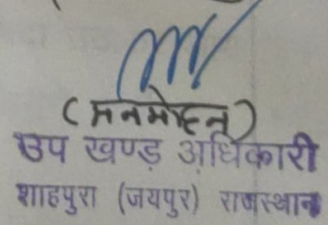 (मनमोहन)
उप खण्ड़ अधिकारी
शाहपुरा (जयपुर) राजस्थान